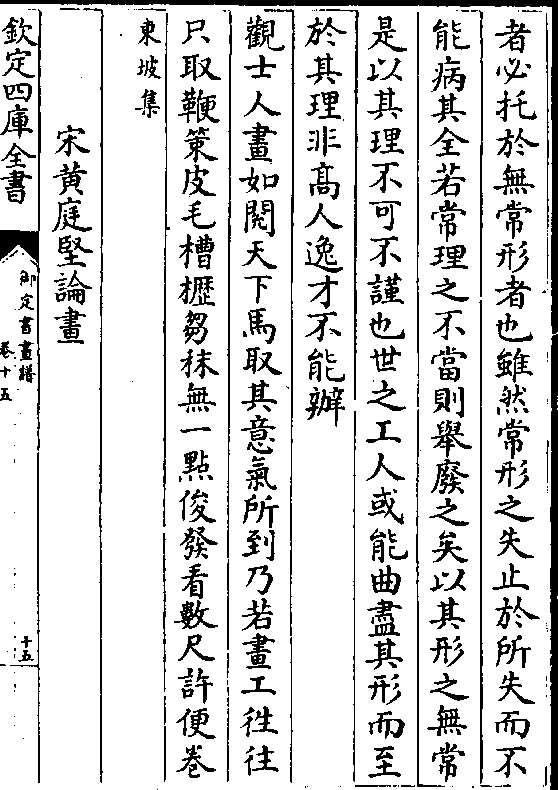 者必托於無常形者也雖然常形之失止於所失而不
能病其全若常理之不當則舉廢之矣以其形之無常
是以其理不可不謹也世之工人或能曲盡其形而至
於其理非高人逸才不能辦
觀士人畫如閱天下馬取其意氣所到乃若畫工徃往
只取鞭策皮毛槽櫪芻秣無一點俊發看數尺許便卷
東坡集
宋黃庭堅論畫
欽定四庫全書
御定書畫譜
卷十五
十五